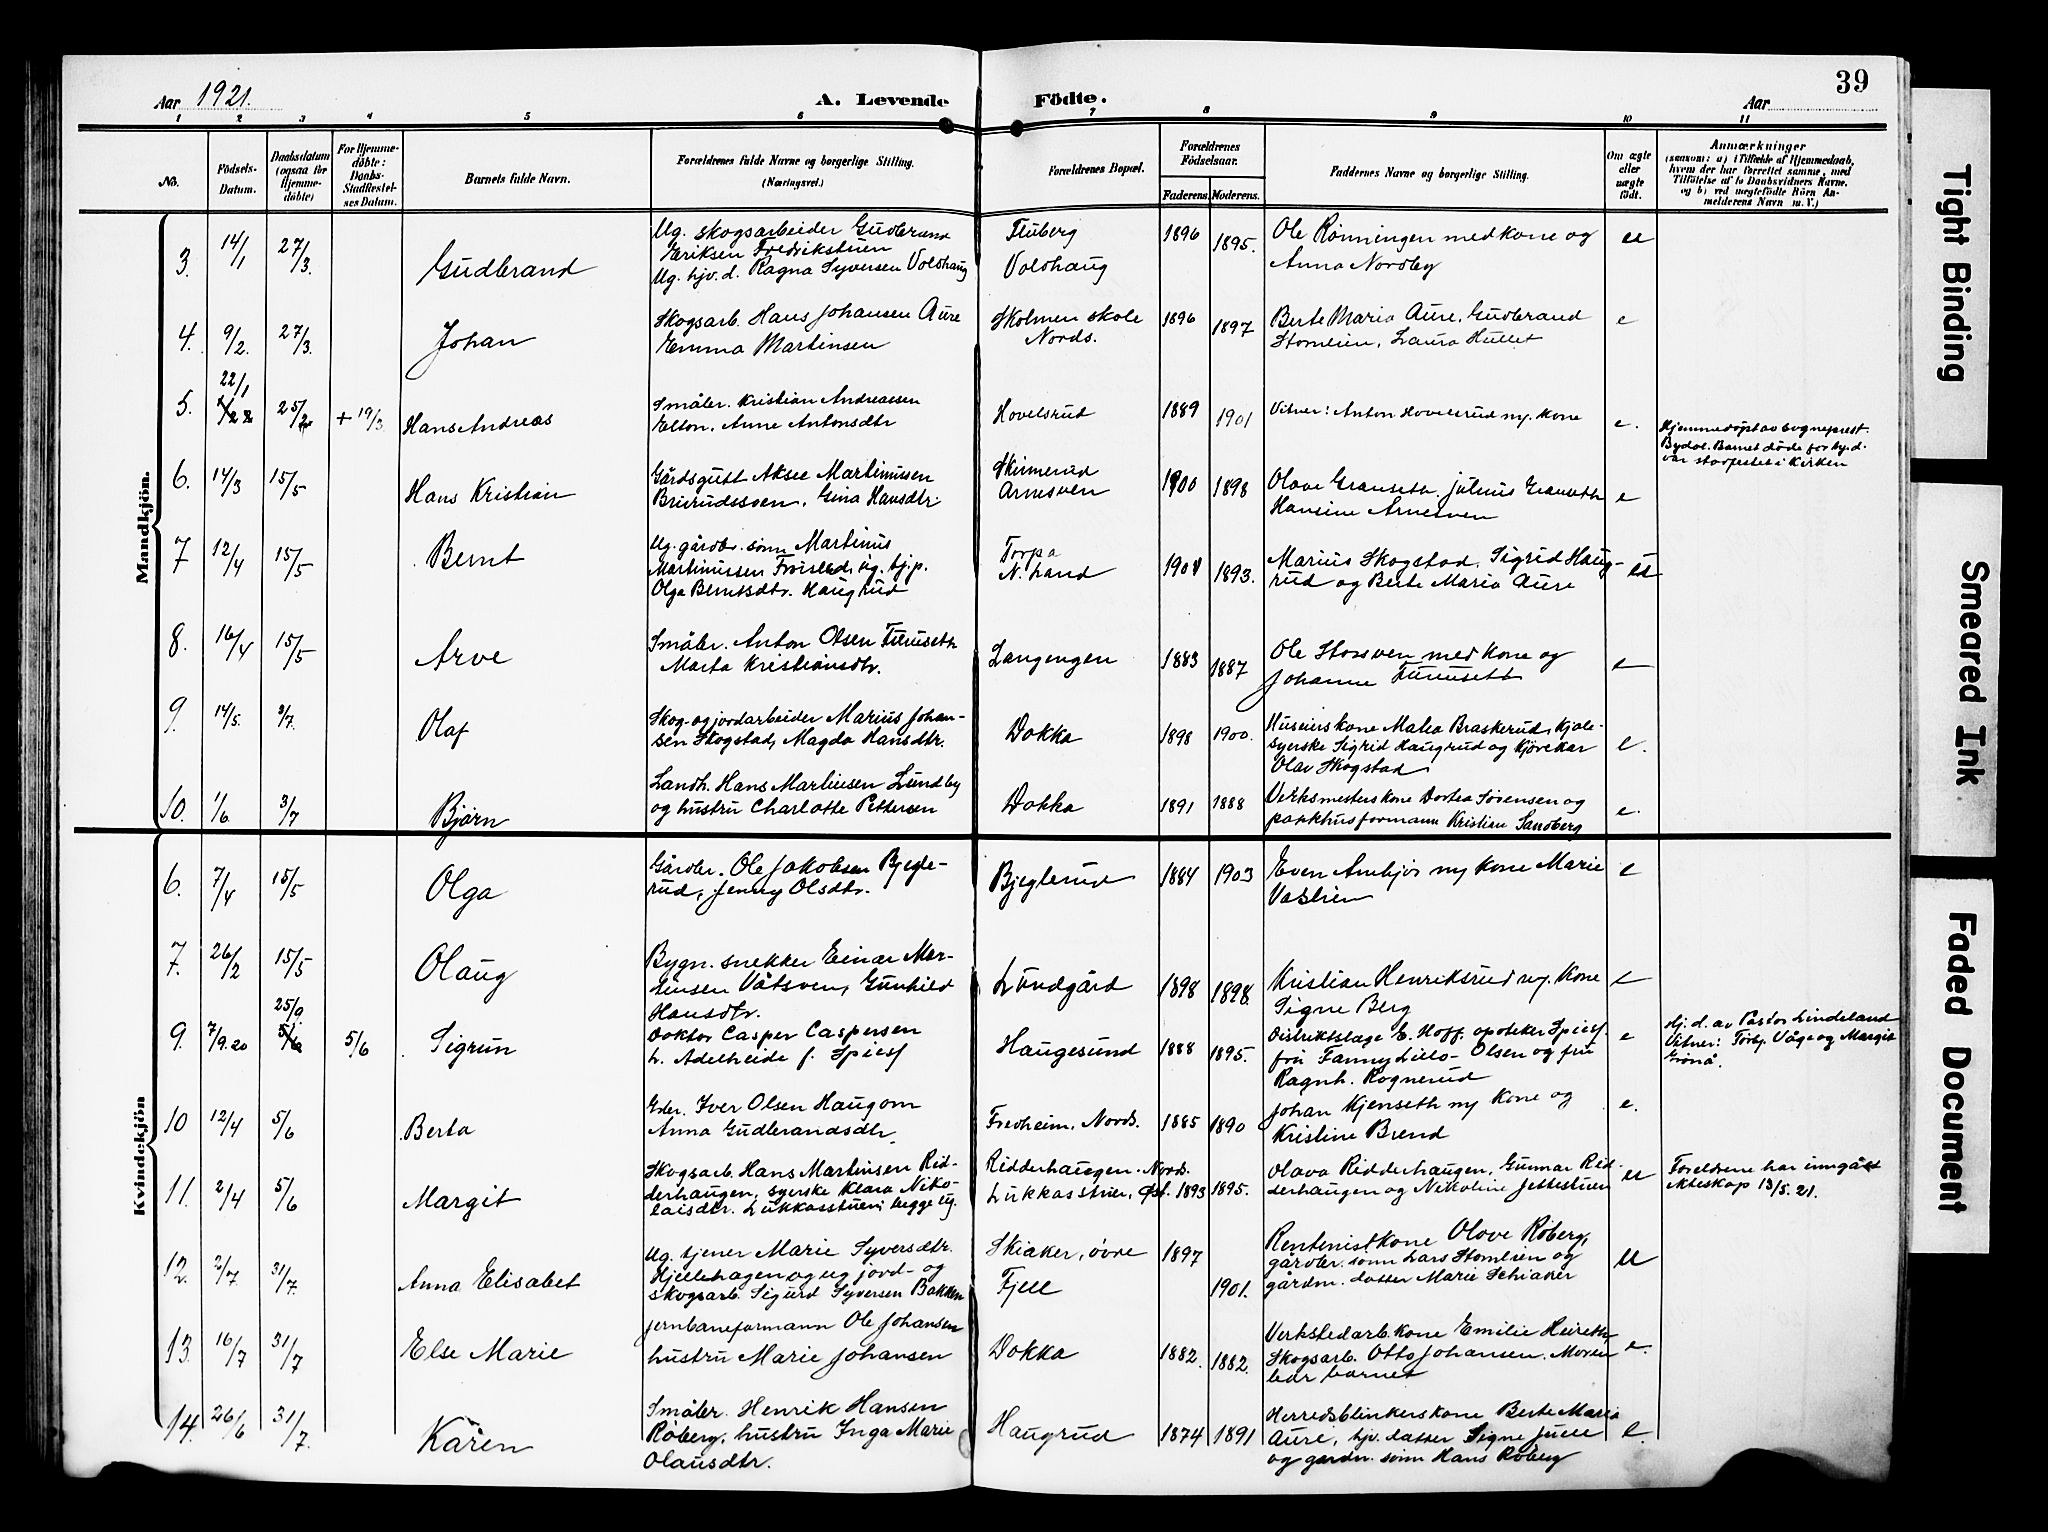 39
Aar 1921.
A. Levende Födte.
Aar
1 2 3 4 5 6 7 8 9 10 11
No.
Födsels-
Datum.
Daabsdatum
(ogsaa for
Hjemme-
döbte)
For Hjemme-
döbte:
Daabs-
Stadfæstel-
ses Datum.
Barnets fulde Navn.
Forældrenes fulde Navne og borgerlige Stilling.
(Næringsvei.)
Forældrenes Bopæl.
Forældrenes
Födselsaar.
Faderens. Moderens.
Faddernes Navne og borgerlige Stilling.
Om ægte
eller
uægte
födt.
Anmærkninger
(saasom: a) i Tilfælde af Hjemmedaab,
hvem der har forrettet samme, med
Tilföielse af to Daabsvidners Navne.
og b) ved uægtefödte Börn An-
melderens Navn m. V.)
Mandkjön.
3. 14/1 27/3. Gudbrand
Ug. skogsarbeider Gudbrand
Eriksen Fredrikstuen
Ug. hjv. d. Ragna Syversen Voldhaug
Fluberg
Voldhaug
1896 1895.
Ole Rønningen med kone og
Anna Nordby
u
4. 9/2. 27/3. Johan
Skogsarb. Hans Johansen Aure
Emma Martinsen
Skolmen skole
Nords.
1896 1897
Berte Maria Aure, Gudbrand
Stomlien, Laura Hullet
e
5. 22/1 25/2 + 19/3 Hans Andreas
Småbr. Kristian Andreassen
Elton, Anne Antonsdtr
Hovelsrud
1889 1901
Vitner: Anton Hovelsrud m. kone
e.
Hjemmedøpt av sogneprest
Barnet døde før dyd.
var stadfestet i kirken
6. 14/3 15/5 Hans Kristian
Gårdsgutt Aksel Martinusen
Gina Hansdtr
Skinnerud
Arnesven
1900 1898
Olave Granseth, Julius Granseth
Hansine Arnesven
e
7 12/4 15/5 Bernt
Ug. gårdbr. sønn Martinus
Martinussen Frøisled, ug. tj.p.
Olga Berntsdtr. Haugrud
Torpa
N. Land
1901 1893.
Marius Skogstad, Sigrid Haug-
rud og Berte Maria Aure
u
8. 16/4 15/5 Arve
Småbr. Anton Olsen Furuseth
Marta Kristiansdtr.
Langengen
1883 1887
Ole Storsven med kone og
Johanne Furusett
e
9. 14/5. 3/7. Olaf
Skog- og jordarbeider Marius Johan-
sen Skogstad, Magda Hansdtr.
Dokka
1898 1900.
Husmerskone Malea Braskerud, Kjole-
syerske Sigrid Haugrud og
Olav Skogstad
e.
10. 1/6 3/7 Bjørn
Landh. Hans Martinsen Lundby
og hustru Charlotte Pettersen
Dokka
1891 1888
Verksmesterskone Dortea Sørensen og
pakkhusformann Kristian Sandberg
e.
Kvindekjön
6. 7/4 15/5 Olga
Gårdbr. Ole Jakobsen Bjegle-
rud, Jenny Olsdtr.
Bjeglerud
1884 1903
Even Amhjør m kone Marie
Vaslien
e
7. 26/2 15/5 Olaug
Bygn. snekker Einar Mar-
tinsen Våtsven, Gunhild
Hansdtr.
Lundgård
1898 1898.
Kristian Henriksrud m. kone
Signe Berg
e
9. 7/9.20 25/9 5/6 5/6 Sigrun
Doktor Casper Caspersen
h. Adelheide f. Spiess
Haugesund
1888 1895.
Distriktslæge E. Hoff, apoteker Spiess
fru Fanny Lillo-Olsen og fru
Ragnh. Rognerud
e
Hj. d. av Pastor Lindeland
Vitner: Torbj. Våge og Margit
Grønå.
10 12/4 5/6 Berta
Gbr. Iver Olsen Haugom
Anna Gudbrandsdtr.
Fredheim, Nords.
1885 1890
Johan Kjenseth m kone og
Kristine Brend
e.
11. 2/4 5/6 Margit
Skogsarb. Hans Martinsen Rid-
derhaugen, syerske Klara Niko-
laisdtr. Lukkasstuen, begge ug.
Ridderhaugen. Nords.
Lukkasstuen, Øst.
1893 1895.
Olava Ridderhaugen, Gunnar Rid-
derhaugen og Nikoline Jettestuen
u
Foreldrene har inngått
ekteskap 13/5.21.
12. 2/7 31/7. Anna Elisabet
Ug. tjener Marie Syversdtr.
Hjellehagen og ug jord- og
skogsarb. Sigurd Syversen Bakken
Skiaker, øvre
Fjell
1897 1901.
Rentenistkone Olave Røberg,
gårdbr. sønn Lars Stomlien og
gårdm. datter Marie Schiaker
U
13. 16/7 31/7 Else Marie
Jernbaneformann Ole Johansen
hustru Marie Johansen
Dokka
1882. 1882.
Verkstedarb. kone Emilie Heireth,
Skogsarb. Otto Johansen. Moren
bar barnet
e.
14. 26/6 31/7. Karen
Småbr. Henrik Hansen
Røberg, hustru Inga Marie
Olausdtr.
Haugrud
1874 1891
Herredsblinkerskone Berte Maria
Aure, hjv. datter Signe Juell
og gårdm. sønn Hans Røberg
e.
Tight Binding
Smeared Ink
Faded Document